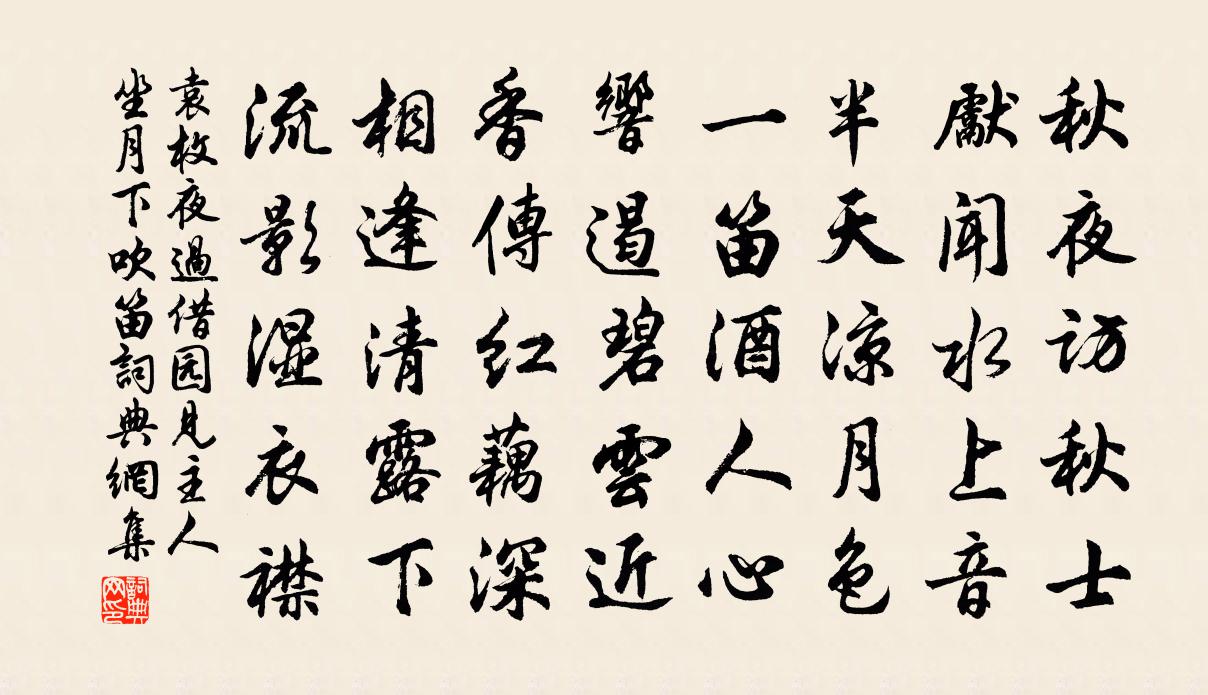 秋夜訪秋士
獻聞水上音
半天涼月色
一笛酒人心
響遏碧雲近
香傳红藕深
相逢清露下
流影湿衣襟
袁枚夜過借园見主人
坐月下吹笛詞典網集
詞典网印